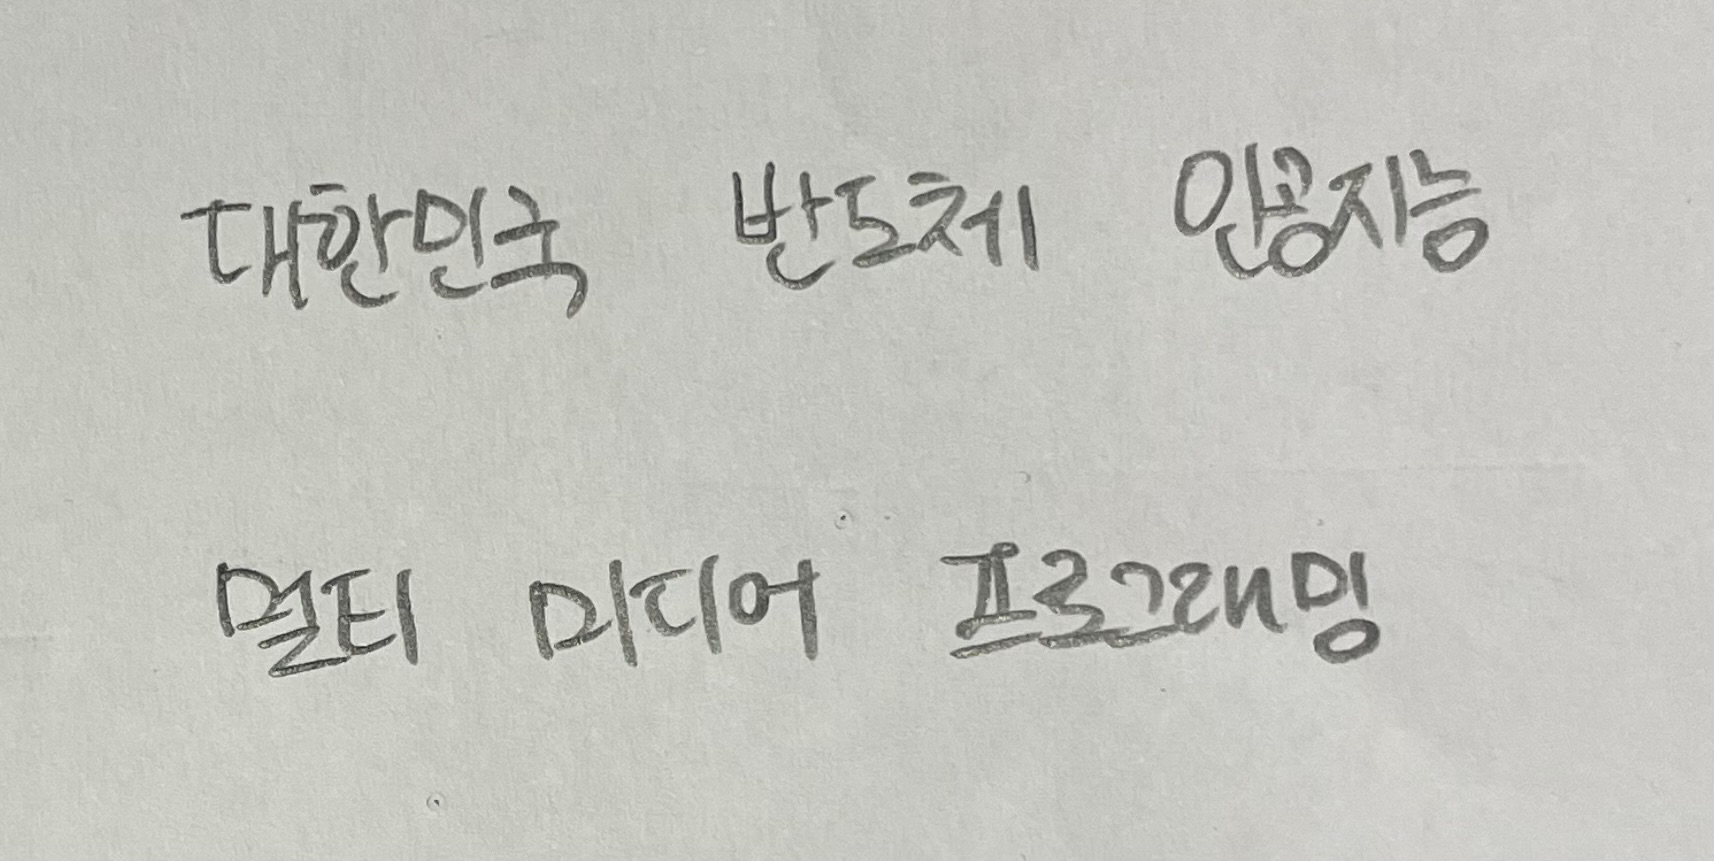 대한민국 반도체 인공지능
멀티 미디어 프로그래밍